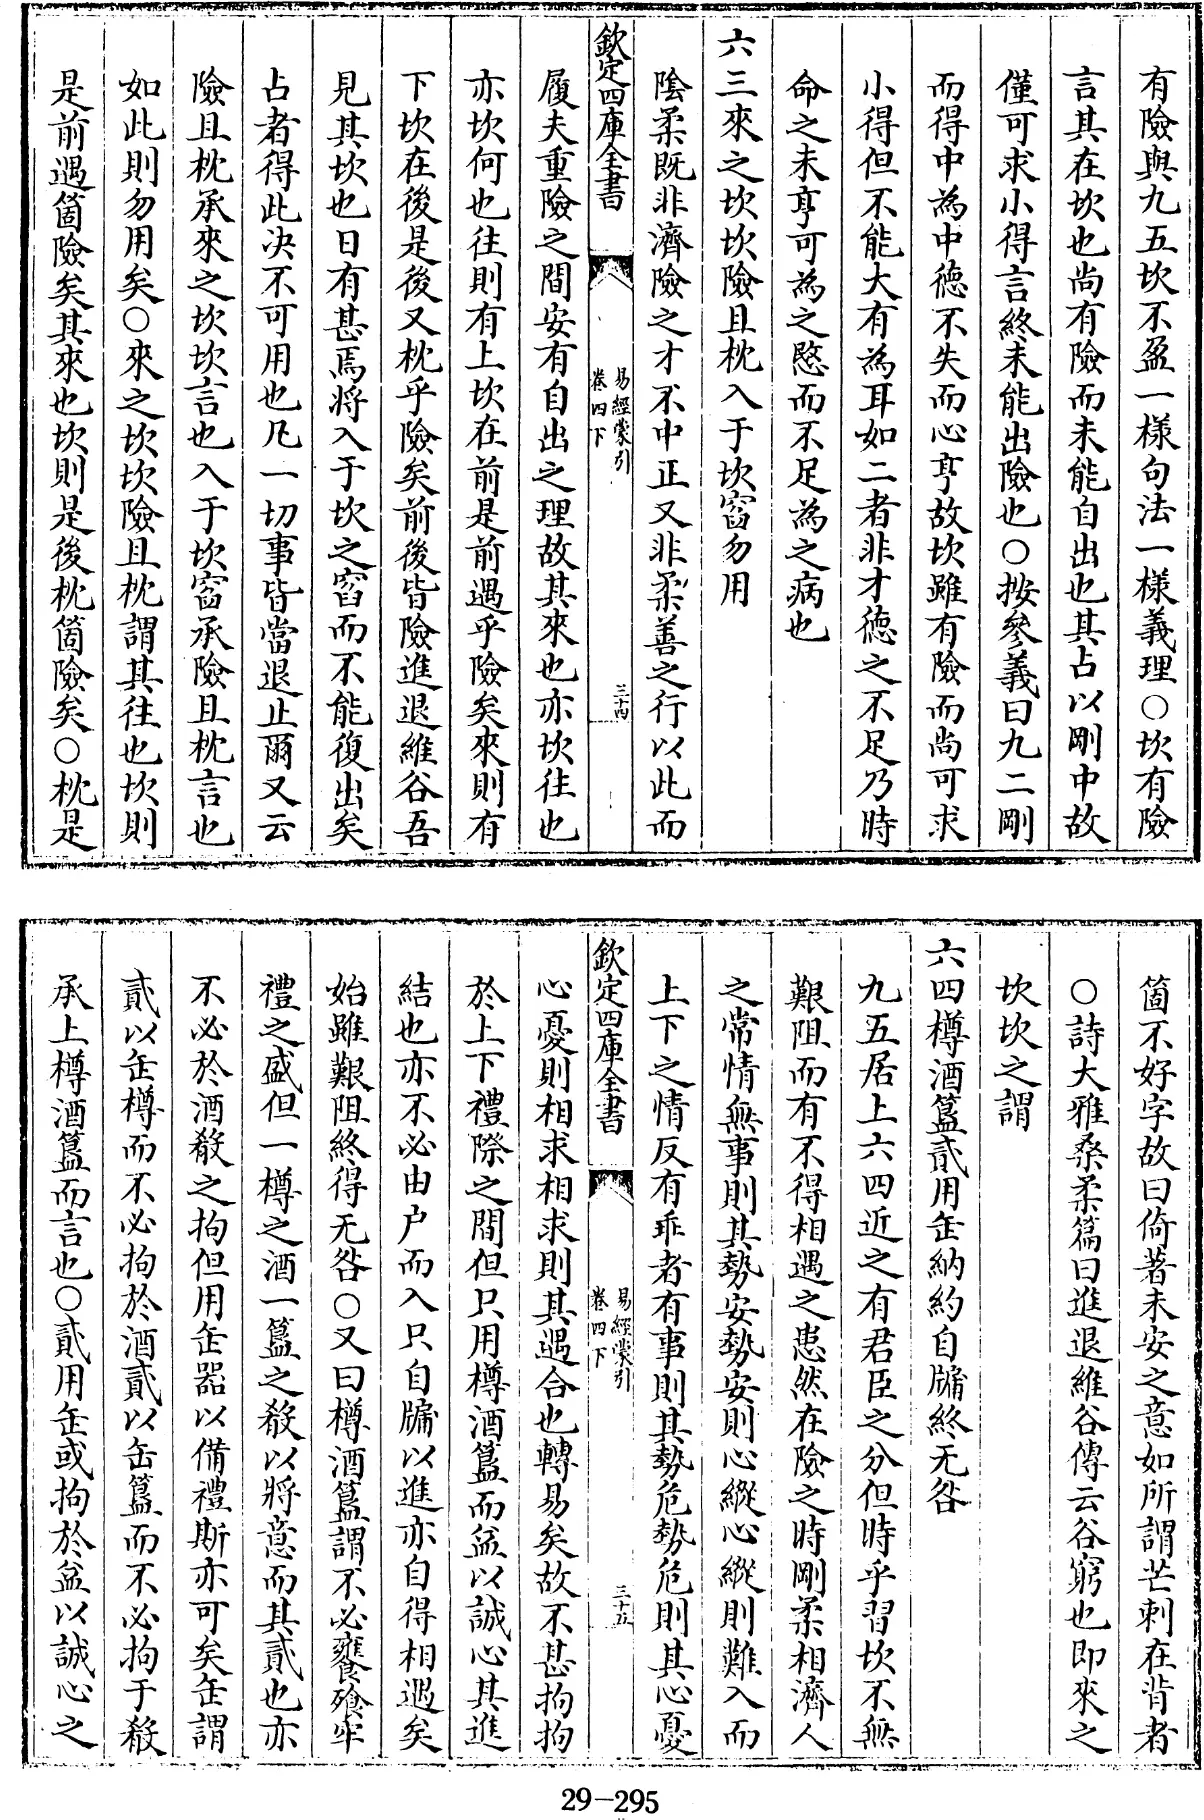 有險與九五坎不盈一樣句法一樣義理○坎有險
言其在坎也尚有險而未能自出也其占以剛中故
僅可求小得言終未能出險也○按參義曰九二剛
而得中為中德不失而心亨故坎雖有險而尚可求
小得但不能大有為耳如二者非才德之不足乃時
命之未亨可為之愍而不足為之病也
六三來之坎坎險且枕入于坎窞勿用
陰柔既非濟險之才不中正又非柔善之行以此而
欽定四庫全書
易經蒙引
卷四下
三十四
履夫重險之間安有自出之理故其來也亦坎往也
亦坎何也往則有上坎在前是前遇乎險矣來則有
下坎在後是後又枕乎險矣前後皆險進退維谷吾
見其坎也日有甚焉將入于坎之窞而不能復出矣
占者得此决不可用也凡一切事皆當退止爾又云
險且枕承來之坎坎言也入于坎窞承險且枕言也
如此則勿用矣○來之坎坎險且枕謂其往也坎則
是前遇箇險矣其來也坎則是後枕箇險矣○枕是
箇不好字故曰倚著未安之意如所謂芒刺在背者
○詩大雅桑柔篇曰進退維谷傳云谷窮也即來之
坎坎之謂
六四樽酒簋貳用缶納約自牖終无咎
九五居上六四近之有君臣之分但時乎習坎不無
艱阻而有不得相遇之患然在險之時剛柔相濟人
之常情無事則其勢安勢安則心縱心縱則難入而
上下之情反有乖者有事則其勢危勢危則其心憂
欽定四庫全書
易經蒙引
卷四下
三十五
心憂則相求相求則其遇合也轉易矣故不甚拘拘
於上下禮際之間但只用樽酒簋而益以誠心其進
結也亦不必由户而入只自牖以進亦自得相遇矣
始雖艱阻終得无咎○又曰樽酒簋謂不必饔飱牢
禮之盛但一樽之酒一簋之殽以將意而其貳也亦
不必於酒殽之拘但用缶器以備禮斯亦可矣缶謂
貳以缶樽而不必拘於酒貳以缶簋而不必拘于殽
承上樽酒簋而言也○貳用缶或拘於益以誠心之
29-295